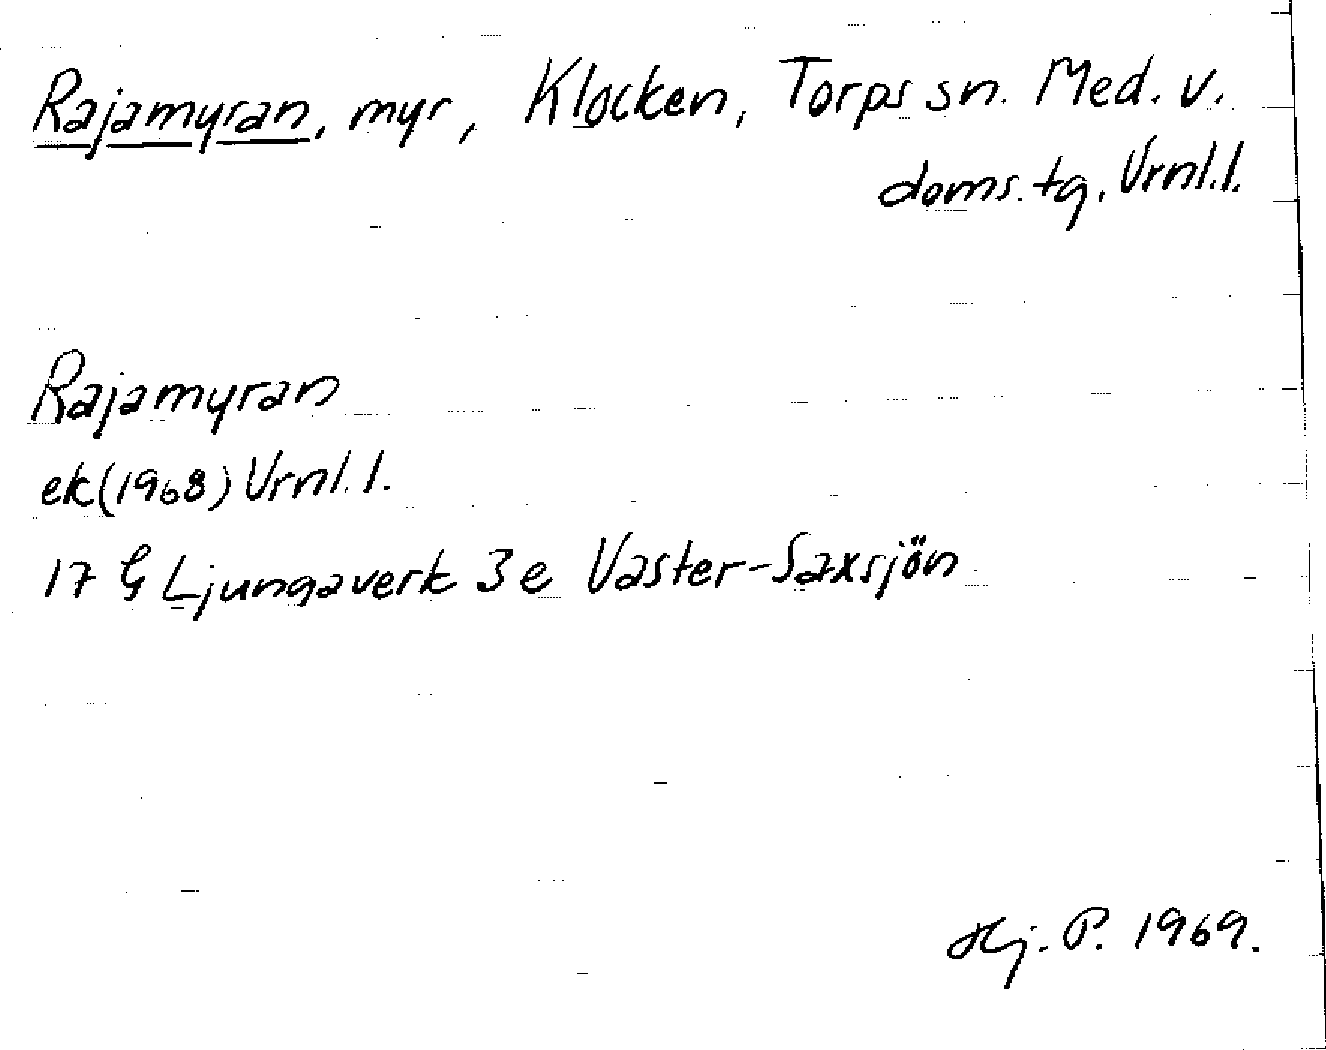 Rajamyran, myr, Klocken, Torps sn. Med. v.
doms. tg, Vrnl. l.
Rajamyran
ek (1968) Vrnl. l.
17 G Ljungaverk 3 e Väster-Saxsjön
Hj. P. 1969.